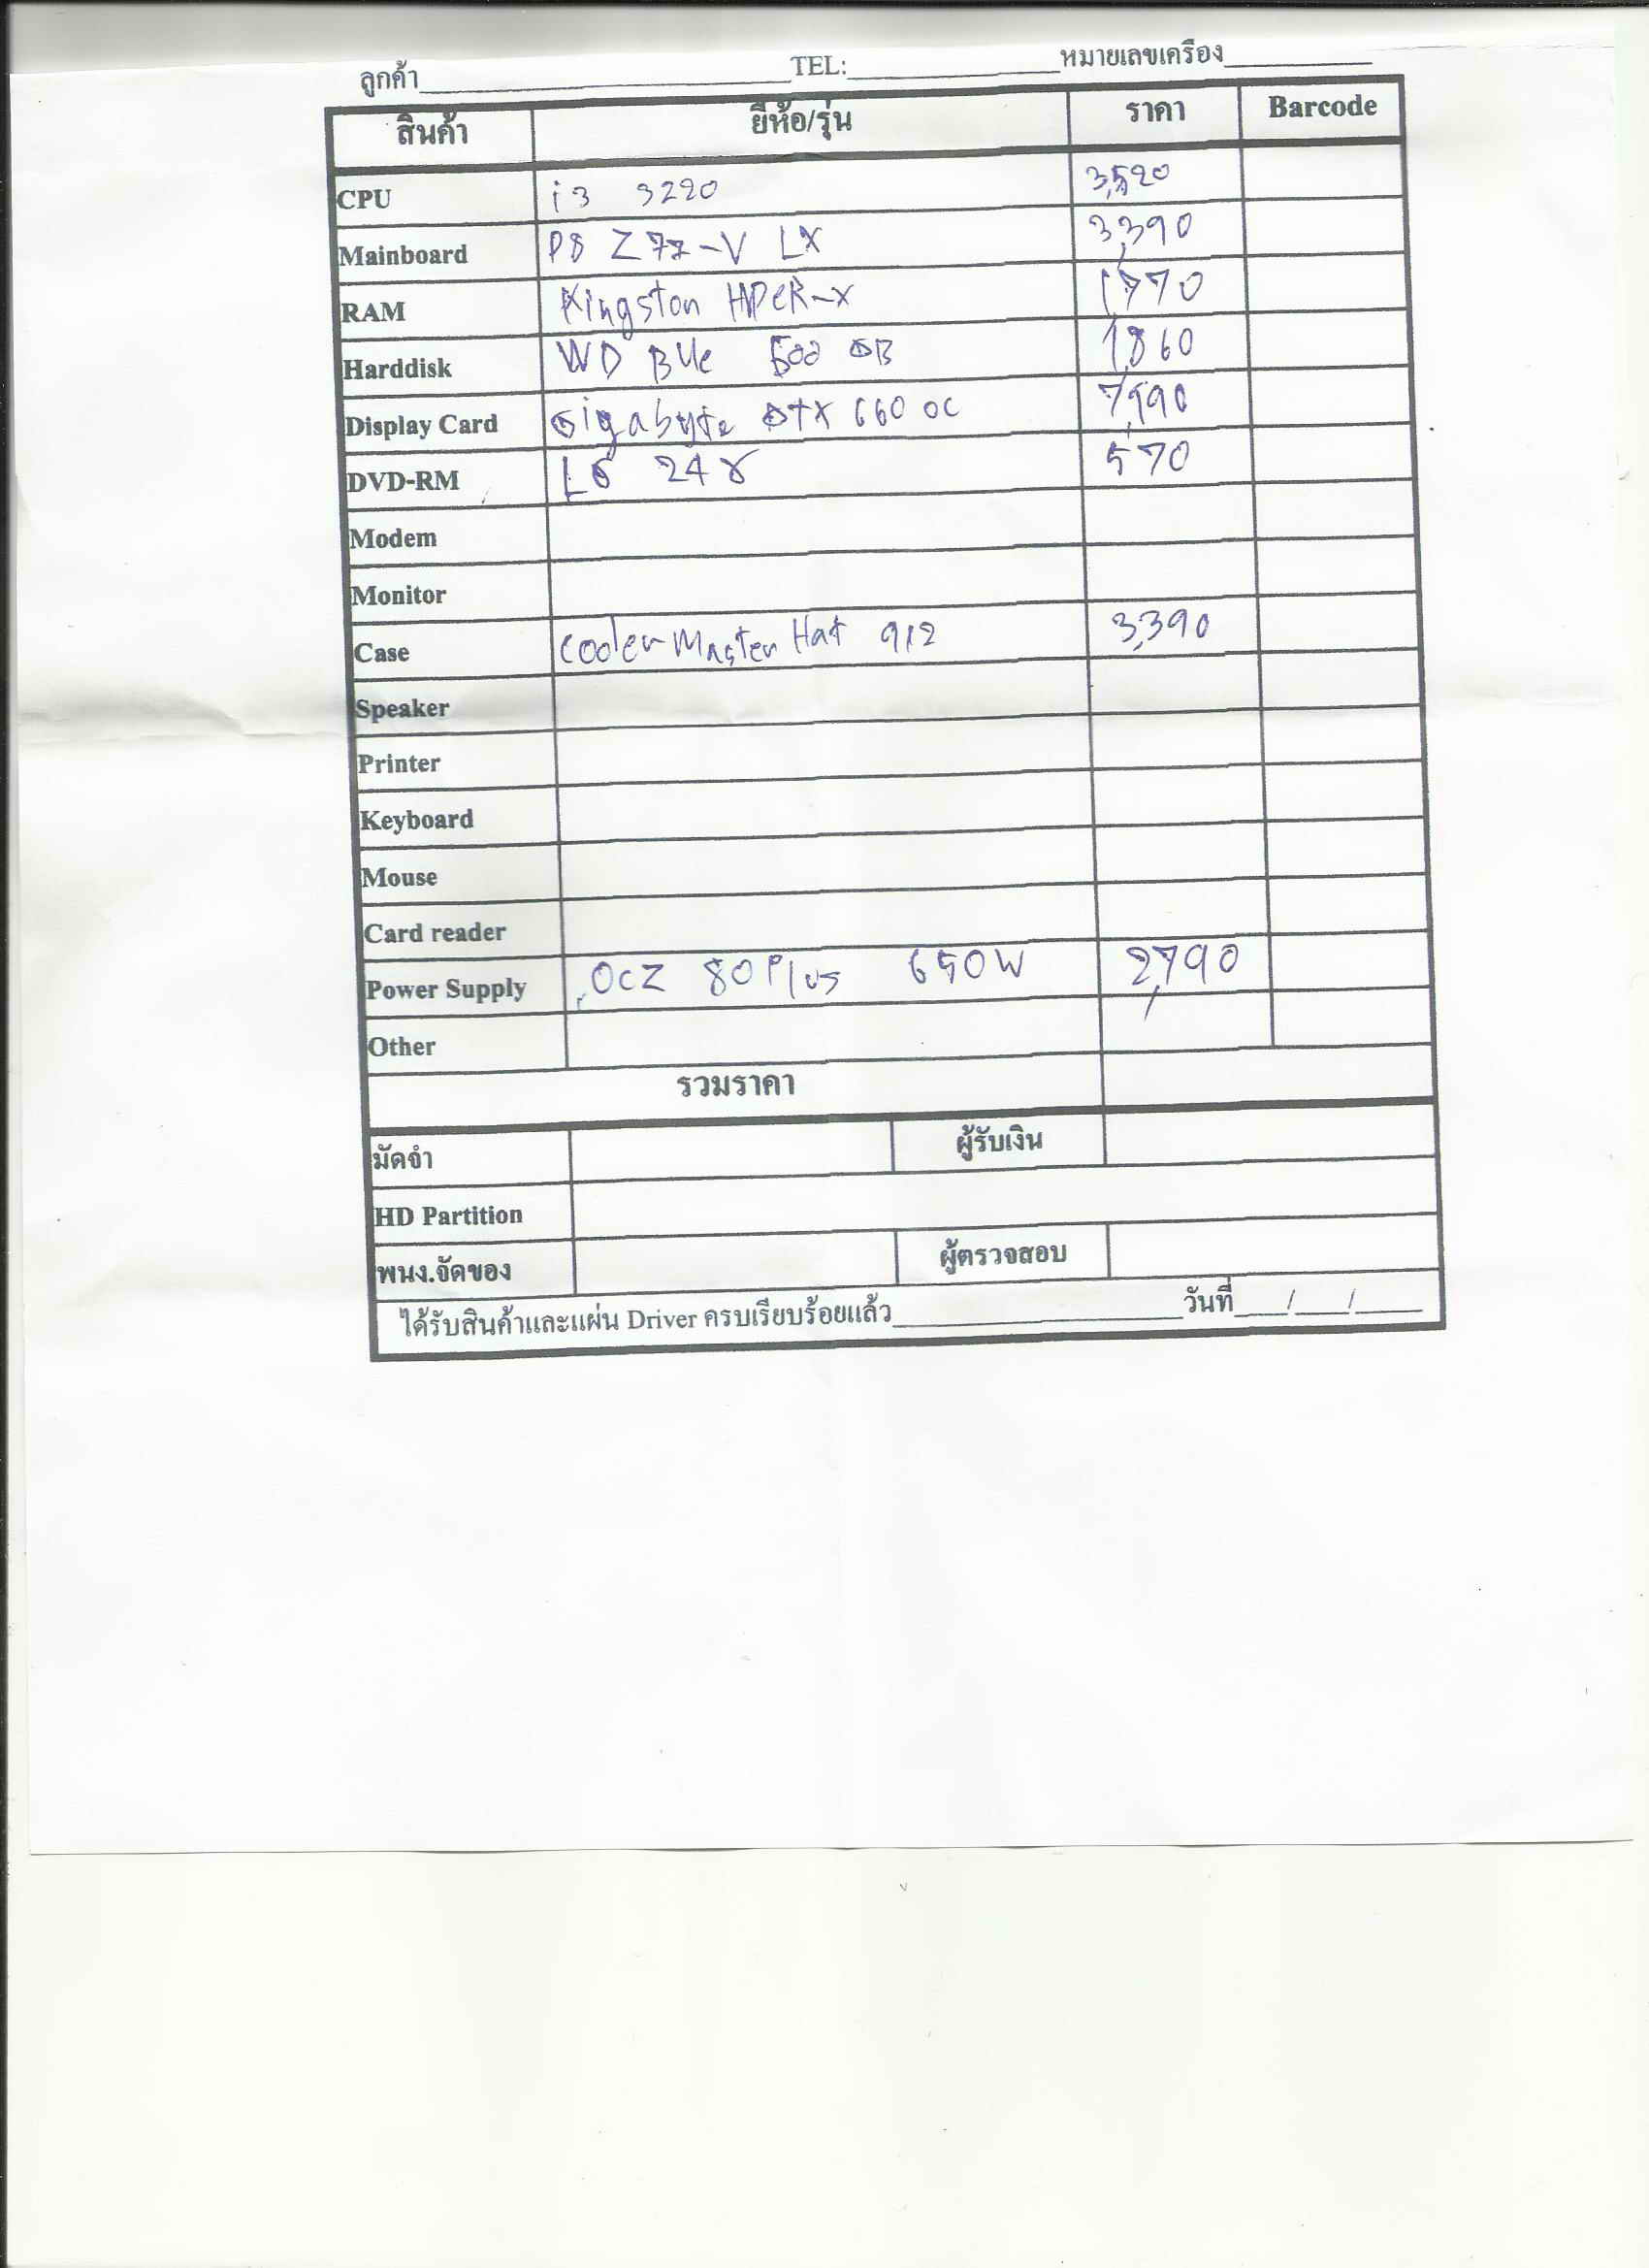 ลูกค้า____________________TEL:____________หมายเลขเครื่อง________
สินค้า ยี่ห้อ/รุ่น ราคา Barcode
CPU i3 3220 3,520
Mainboard P8 Z77-V LX 3,390
RAM Kingston HPER-X 1,770
Harddisk WD Blue 500 GB 1,860
Display Card Gigabyte GTX 660 OC 7,990
DVD-RM LG 24X 570
Modem
Monitor
Case Cooler Master Haf 912 3,390
Speaker
Printer
Keyboard
Mouse
Card reader
Power Supply OCZ 80 Plus 650W 2,790
Other
รวมราคา
มัดจำ ผู้รับเงิน
HD Partition
พนง.จัดของ ผู้ตรวจสอบ
ได้รับสินค้าและแผ่น Driver ครบเรียบร้อยแล้ว____________________วันที่___/___/____